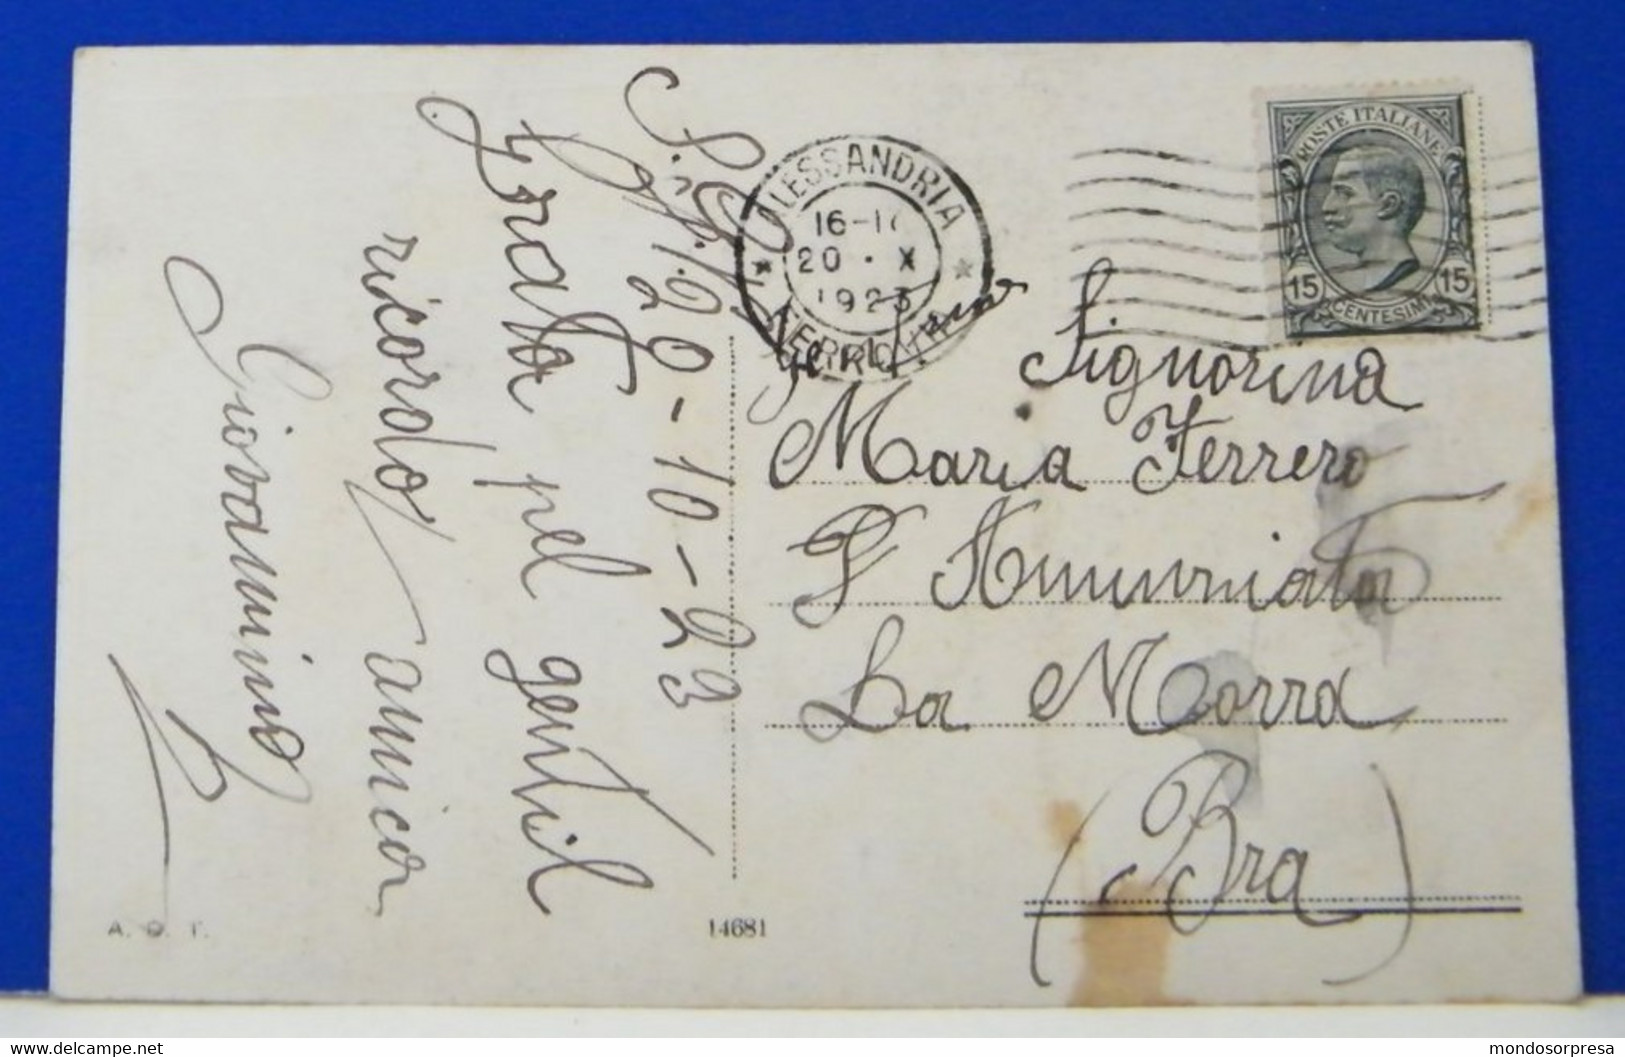 20-10-23
Grata pel gentil
ricordo, amica
Giovannino
ALESSANDRIA
16-1
20 · X
1923
FERROVIA
POSTE ITALIANE
15 15
CENTESIMI
Signorina
Maria Ferrero
Annunziata
La Morra
(Bra)
A. Q. T.
14681
mondosorpresa